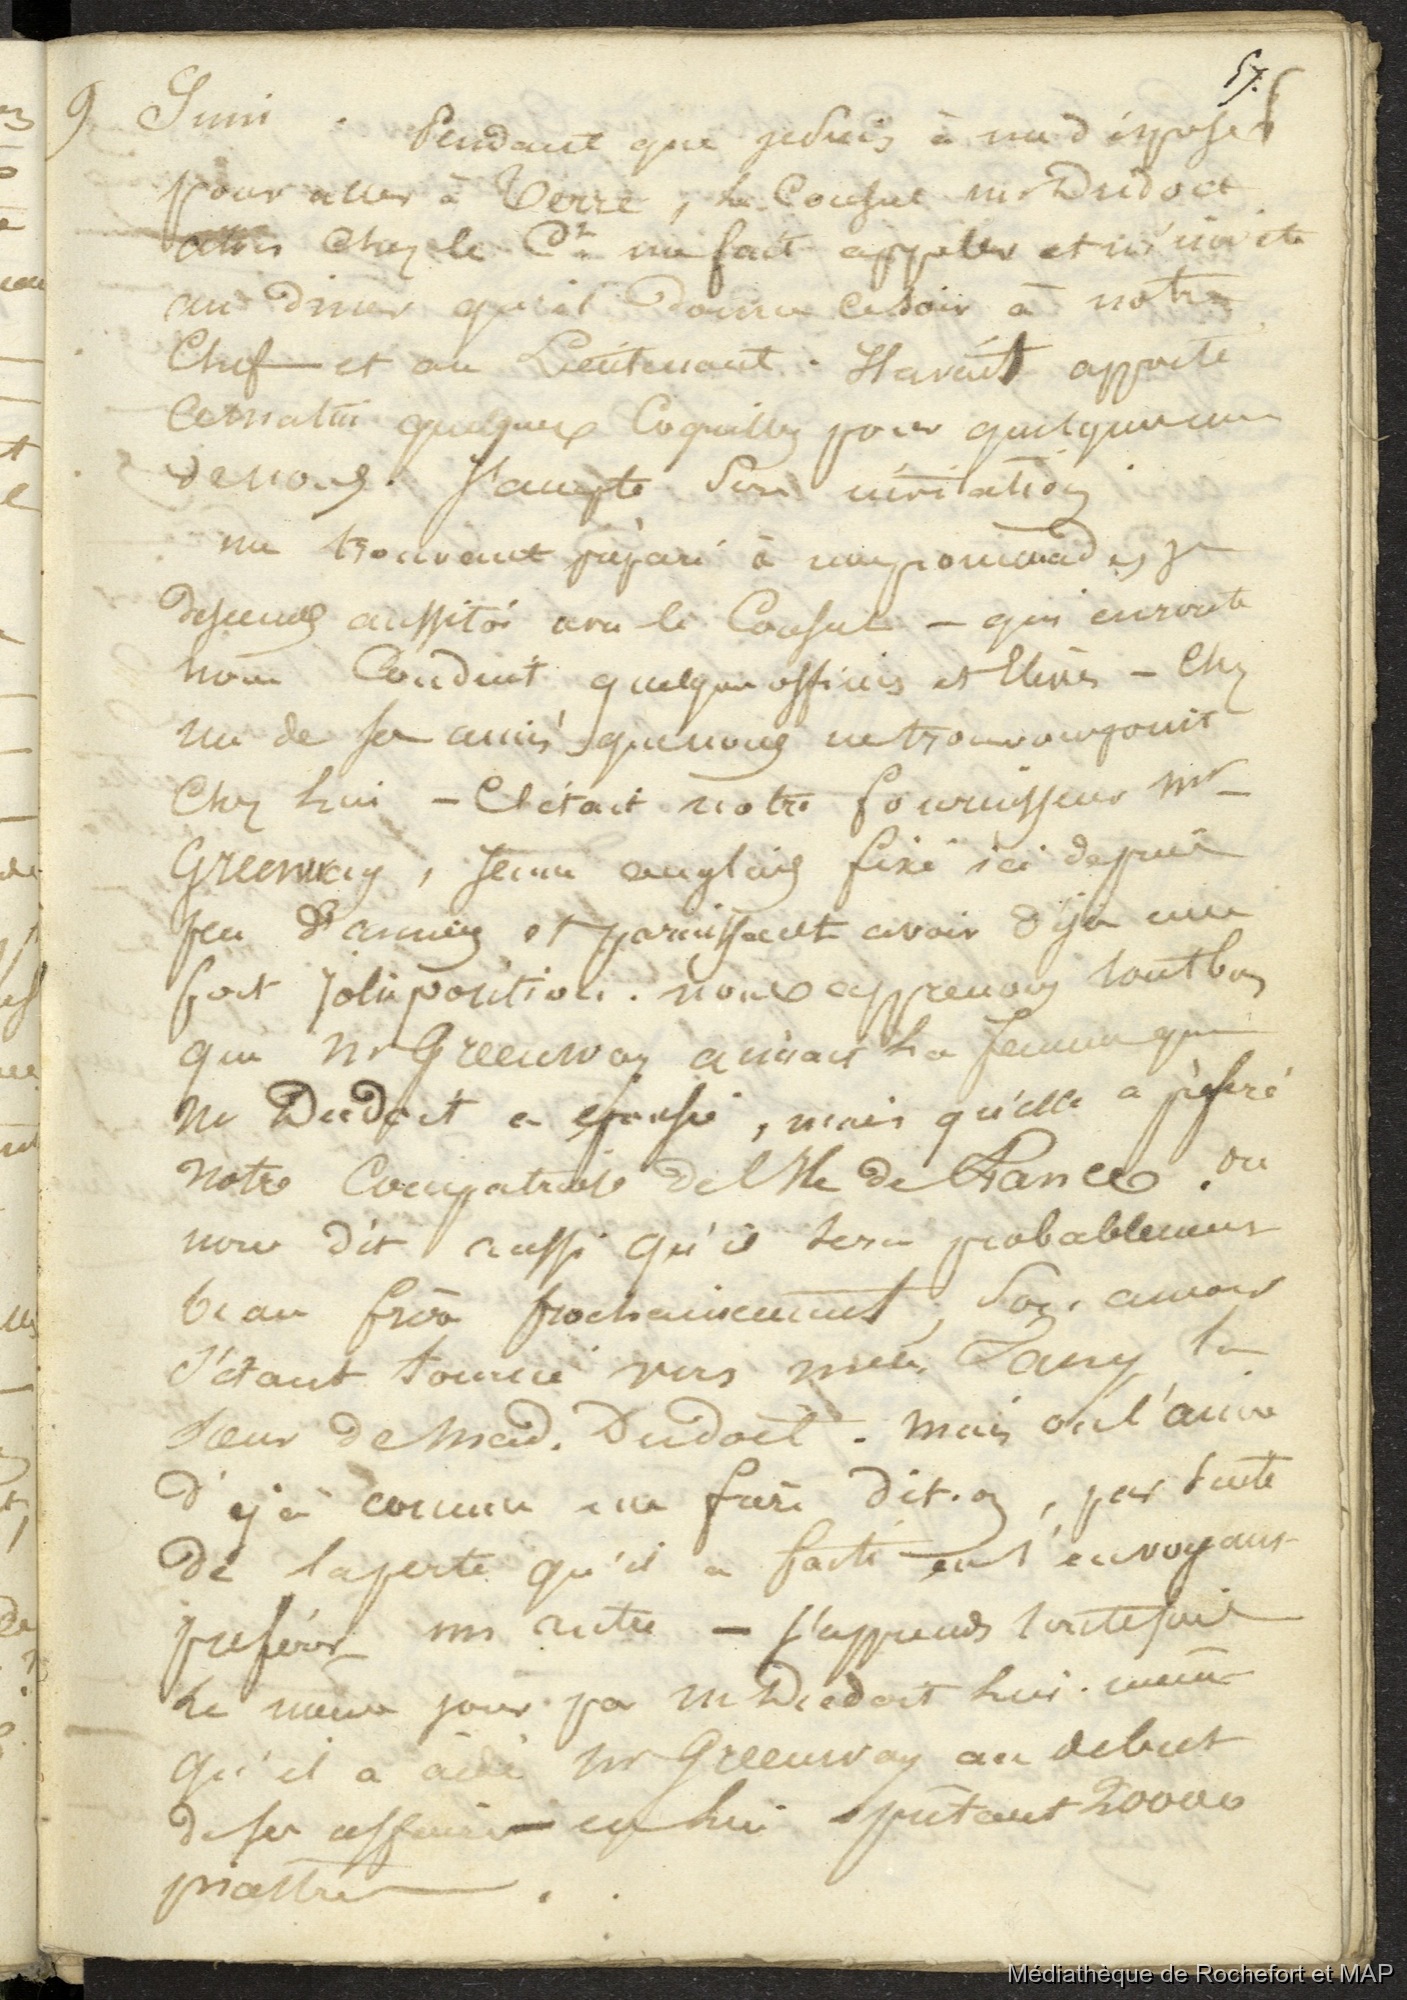 57.
9 Juin . Pendant que je suis à me disposer
pour aller à Terre, le Consul mr Dudoit
alors chez le Ct me fait appeller et m'invite
au diner qu'il donne ce soir à notre
Chef et au Lieutenant . Il avait apporté
ce matin quelques Coquilles pour quelques uns
de nous. J'accepte son invitation
me trouvant préparé à une promenade je
descends aussitôt avec le Consul – qui en route
nous Conduit quelques officiers et Elèves – Chez
un de ses amis que nous ne trouvons point
Chez lui – C'était notre fournisseur mr
Greenway, Jeune anglais fixé ici depuis
peu d'années et paraissant avoir déja une
fort jolie position. nous apprenons tout bas
que Mr Greenway aimait la femme que
Mr Dudoit a épousé, mais qu'elle a préféré
notre Compatriote de l'Ile de France. on
nous dit aussi qu'il sera probablement
beau frère prochainement, son amour
s'étant tourné vers melle Fany la
sœur de Mad. Dudoit . Mais on l'aime
d'éjà comme un frère dit-on, par suite
de la perte qu'il a faite en s'en voyant
preférer un autre – J'apprends toutefois
le même jour par Mr Dudoit lui-même
qu'il a aidé Mr Greenway au début
de ses affaires en lui prêtant 20000
piastres .
Médiathèque de Rochefort et MAP